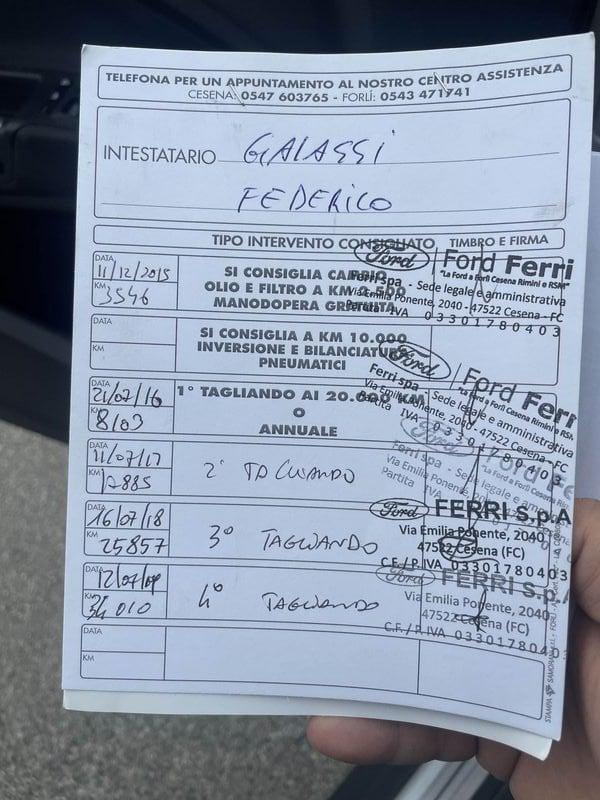 TELEFONA PER UN APPUNTAMENTO AL NOSTRO CENTRO ASSISTENZA
CESENA: 0547 603765 - FORLÌ: 0543 471741
INTESTATARIO GALASSI
FEDERICO
TIPO INTERVENTO CONSIGLIATO TIMBRO E FIRMA
DATA 11/12/2015
KM 3546
SI CONSIGLIA CAMBIO
OLIO E FILTRO A KM 2.500
MANODOPERA GRATUITA
Ford Ford Ferri
"La Ford a Forlì Cesena Rimini e RSM"
Ferri spa - Sede legale e amministrativa
Via Emilia Ponente, 2040 - 47522 Cesena - FC
Partita IVA 03301780403
DATA
KM
SI CONSIGLIA A KM 10.000
INVERSIONE E BILANCIATURA
PNEUMATICI
Ford Ford Ferri
"La Ford a Forlì Cesena Rimini e RSM"
Ferri spa - Sede legale e amministrativa
Via Emilia Ponente, 2040 - 47522 Cesena - FC
Partita IVA 03301780403
DATA 21/07/16
KM 8103
1° TAGLIANDO AI 20.000 KM
O
ANNUALE
Ford Ford Fe
Ferri spa - Sede legale e
Via Emilia Ponente
Partita IVA
DATA 11/07/17
KM 17885
2° TAGLIANDO
DATA 16/07/18
KM 25857
3° TAGLIANDO
Ford FERRI S.p.A
Via Emilia Ponente, 2040
47522 Cesena (FC)
C.F./P. IVA 03301780403
DATA 12/07/
KM 34010
4° TAGLIANDO
Ford FERRI S.p.A
Via Emilia Ponente, 2040
47522 Cesena (FC)
C.F./P. IVA 03301780403
DATA
KM